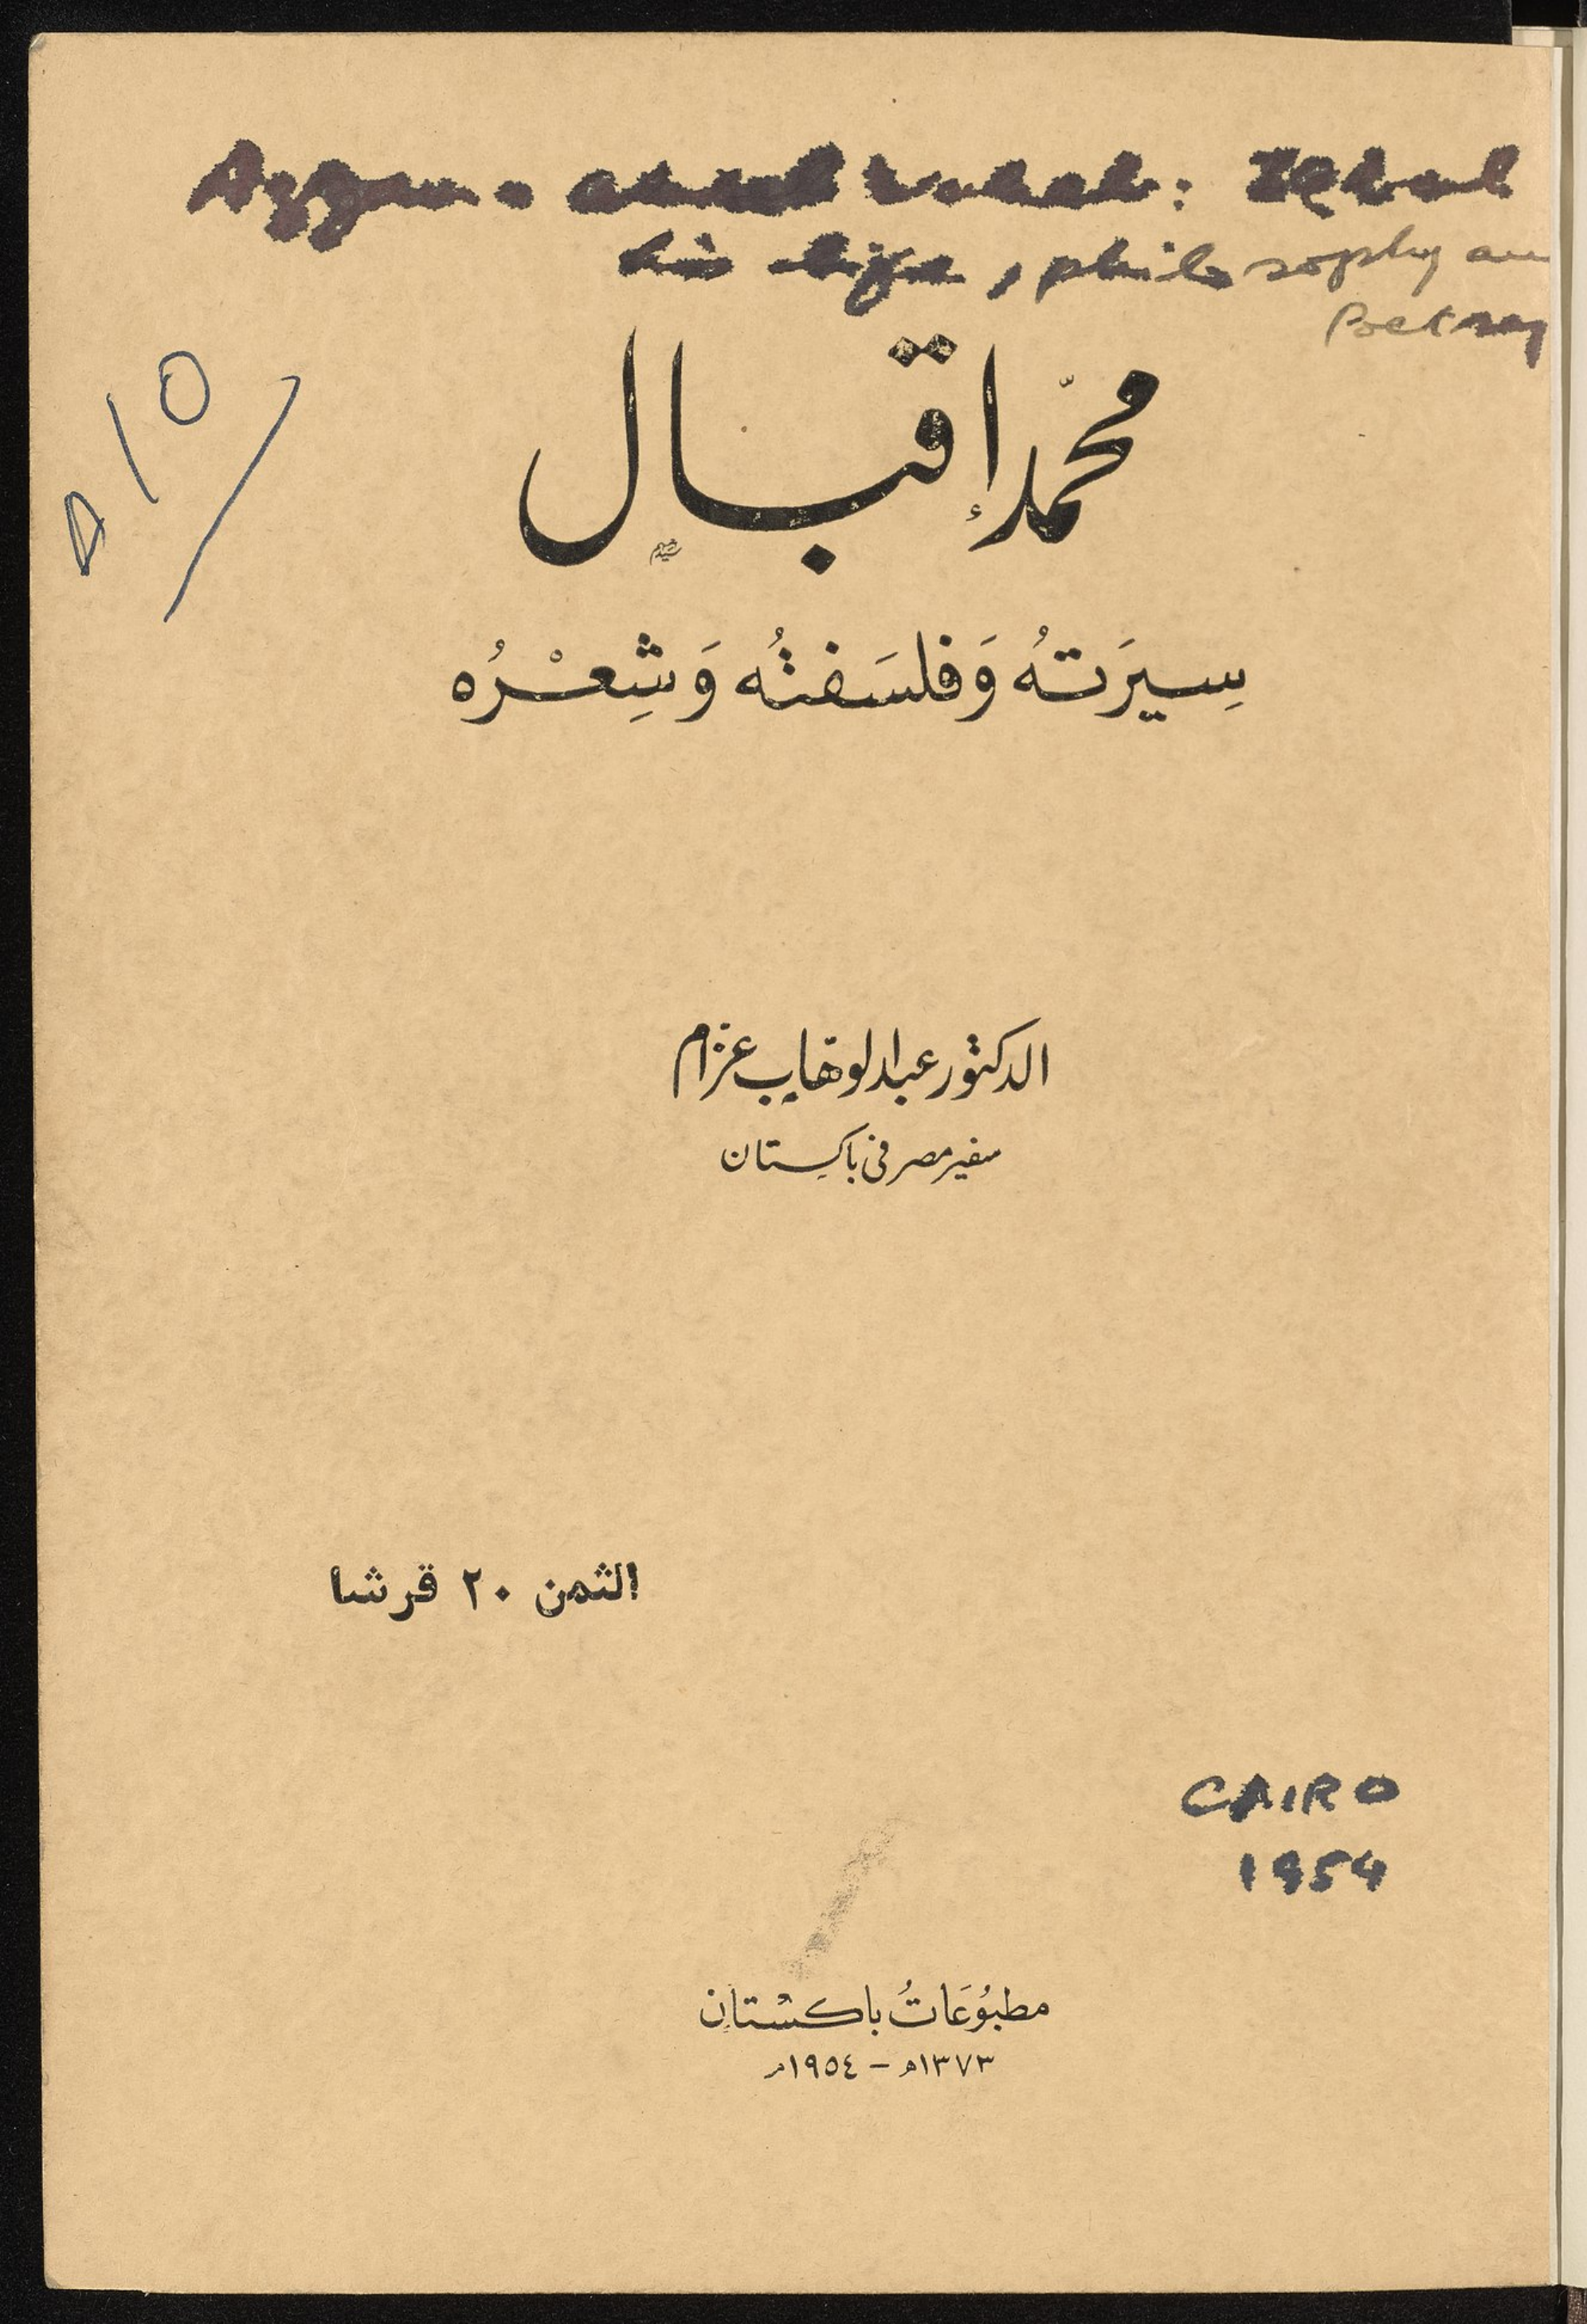 Azzam. Abdul Wahab: Iqbal
his life, philosophy an
Poetry
محمّد إقبال
سِيرَتهُ وَفلسَفتُه وَشِعْرُه
الدكتور عبد الوهاب عزام
سفير مصر في باكستان
الثمن ٢٠ قرشا
CAIRO
1954
مطبُوُعَاتُ باكستان
١٣٧٣ه – ١٩٥٤م